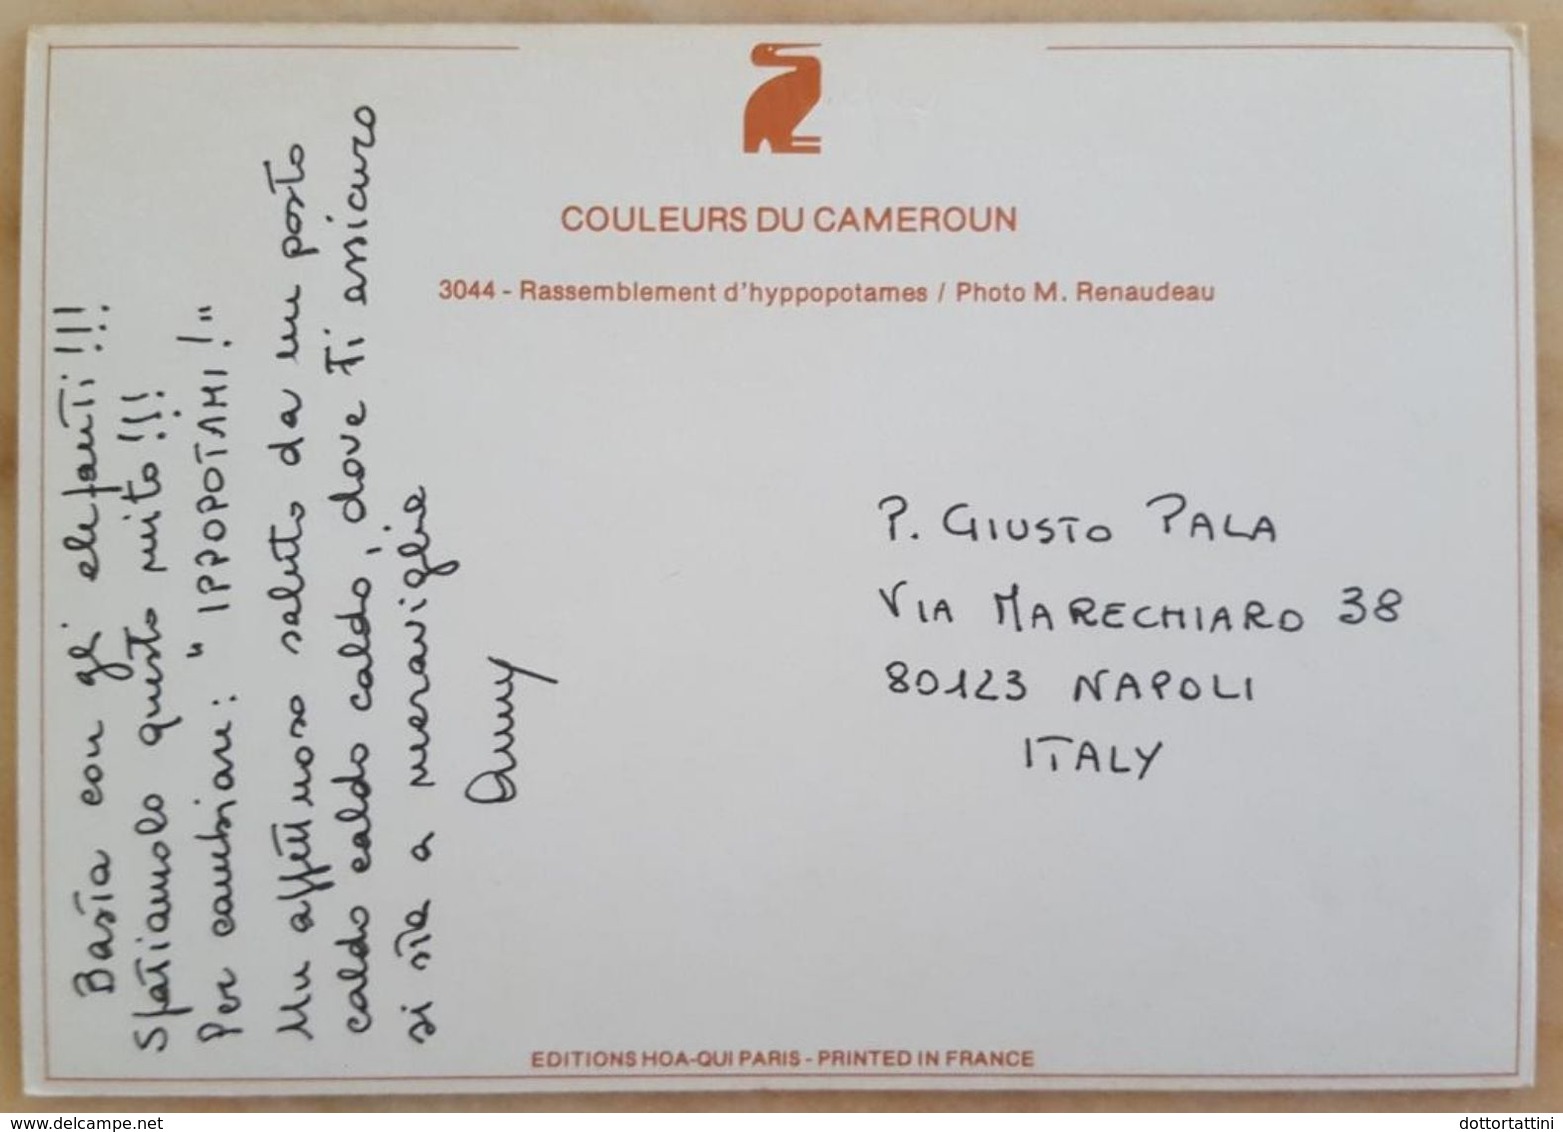 COULEURS DU CAMEROUN
3044 - Rassemblement d'hyppopotames / Photo M. Renaudeau
Basta con gli elefanti!!!
Sfatiamolo questo mito!!!
Per cambiare: "IPPOPOTAMI!"
Un affettuoso saluto da un posto
caldo caldo caldo, dove ti assicuro
si sta a meraviglia
P. GIUSTO PALA
VIA MARECHIARO 38
80123 NAPOLI
ITALY
EDITIONS HOA-QUI PARIS - PRINTED IN FRANCE
www.delcampe.net
dottortattini